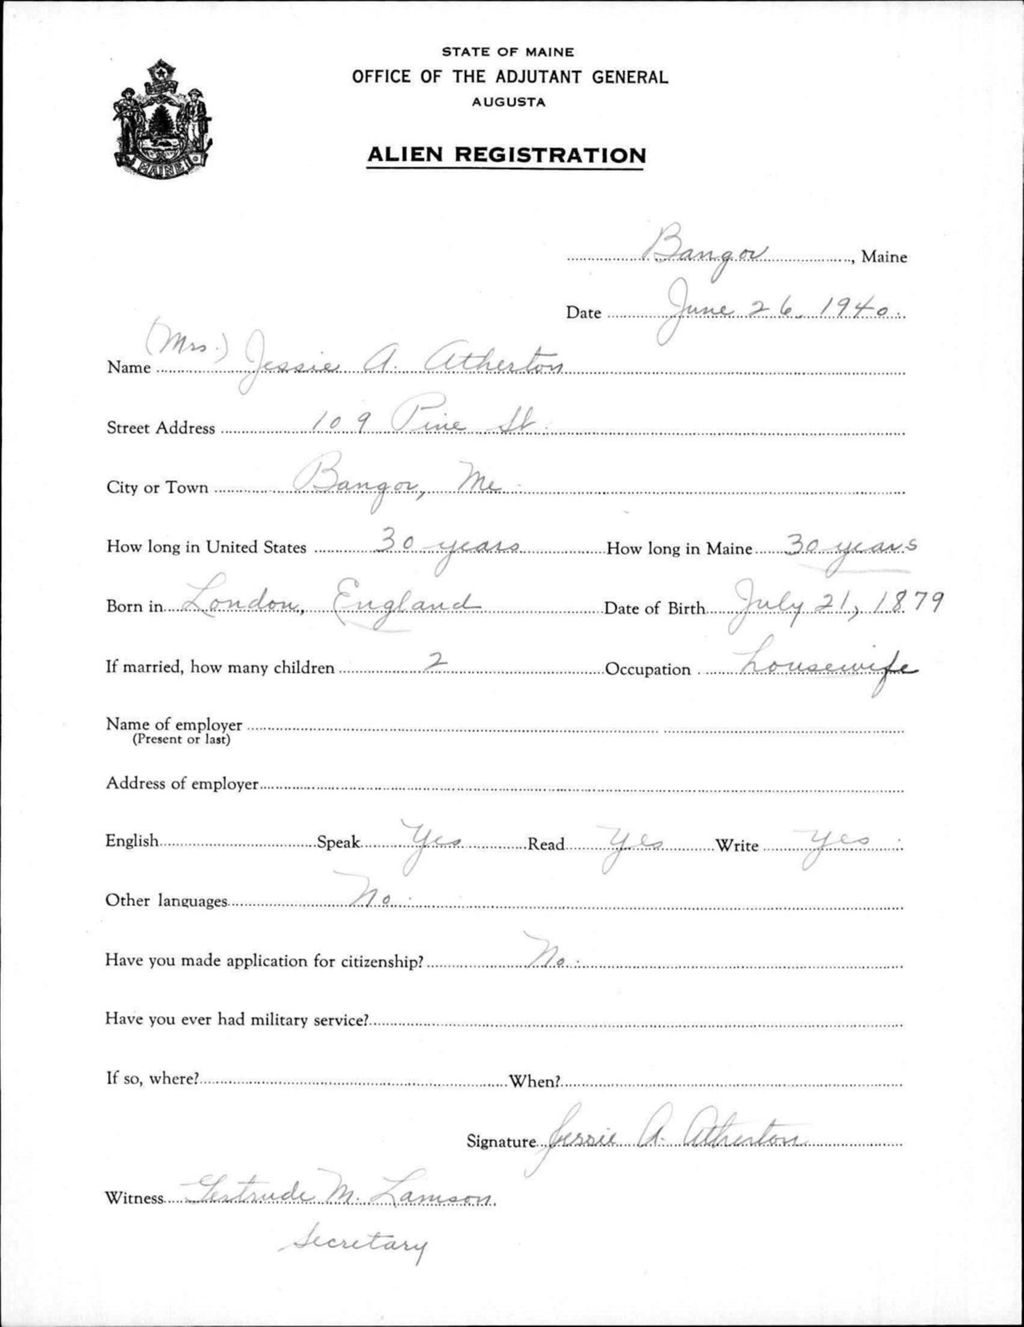 STATE OF MAINE
OFFICE OF THE ADJUTANT GENERAL
AUGUSTA
ALIEN REGISTRATION
MAINE
Bangor, Maine
Date June 26, 1940.
Name (Mrs.) Jessie A. Atherton
Street Address 109 Pine St.
City or Town Bangor, Me.
How long in United States 30 years How long in Maine 30 years
Born in London, England Date of Birth July 21, 1879
If married, how many children 2 Occupation housewife
Name of employer
(Present or last)
Address of employer
English Speak Yes Read Yes Write Yes
Other languages No.
Have you made application for citizenship? No.
Have you ever had military service?
If so, where? When?
Signature Jessie A. Atherton
Witness Gertrude M. Lamson.
Secretary